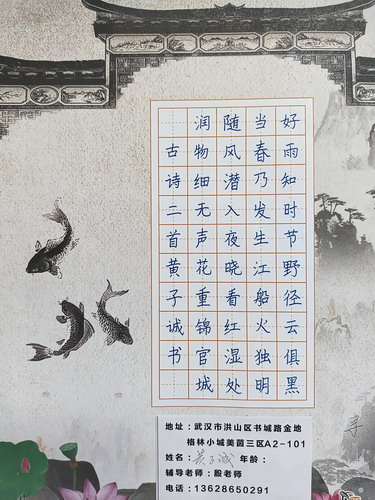 好雨知时节野径云俱黑
当春乃发生江船火独明
随风潜入夜晓看红湿处
润物细无声花重锦官城
古诗二首黄子诚书
地址：武汉市洪山区书城路金地
格林小城美茵三区A2-101
姓名：黄子诚 年龄：
辅导老师：殷老师
电话：13628650291